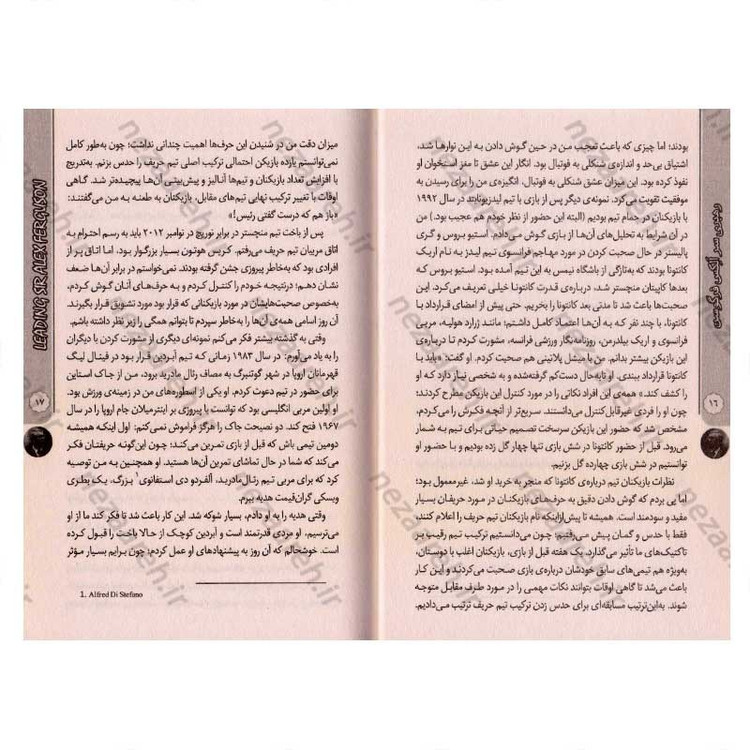 رهبری سر آلکس فرگوسن
۱۶
بودند؛ اما چیزی که باعث تعجب من در حین گوش دادن به این نوارها شد،
اشتیاق بی‌حد و اندازه‌ی شنکلی به فوتبال بود. انگار این عشق تا مغز استخوان او
نفوذ کرده بود. این میزان عشق شنکلی به فوتبال، انگیزه‌ی من را برای رسیدن به
موفقیت تقویت می‌کرد. نمونه‌ی دیگر پس از بازی با تیم لیدزیونایتد در سال ۱۹۹۲
با بازیکنان در حمام تیم بودیم (البته این حضور از نظر خودم هم عجیب بود.) من
در آن شرایط به تحلیل‌های آن‌ها از بازی گوش می‌دادم. استیو بروس و گری
پالیستر در حال صحبت کردن در مورد مهاجم فرانسوی تیم لیدز به نام اریک
کانتونا بودند که به‌تازگی از باشگاه نیمس به این تیم آمده بود. استیو بروس که
بعدها کاپیتان منچستر شد، درباره‌ی قدرت کانتونا خیلی تعریف می‌کرد. این
صحبت‌ها باعث شد تا مدتی بعد کانتونا را بخریم. حتی پیش از امضای قرارداد با
کانتونا، با چند نفر که به آن‌ها اعتماد کامل داشتیم؛ مانند ژرارد هولیه، مربی
فرانسوی و اریک بیلدرمن، روزنامه‌نگار ورزشی فرانسه، مشورت کردم تا درباره‌ی
این بازیکن بیشتر بدانم. من با میشل پلاتینی هم صحبت کردم. او گفت: «باید با
کانتونا قرارداد ببندی. او تابه‌حال دست‌کم گرفته‌شده و به شخصی نیاز دارد که او
را کشف کند.» همه‌ی این افراد نکاتی را در مورد کنترل این بازیکن مطرح کردند؛
چون او را فردی غیرقابل‌کنترل می‌دانستند. سریع‌تر از آنچه فکرش را می‌کردم،
مشخص شد که حضور این بازیکن سرسخت تصمیم حیاتی برای تیم به شمار
می‌رود. قبل از حضور کانتونا در شش بازی تنها چهار گل زده بودیم و با حضور او
توانستیم در شش بازی چهارده گل بزنیم.
نظرات بازیکنان تیم درباره‌ی کانتونا که منجر به خرید او شد، غیرمعمول بود؛
اما پی بردم که گوش دادن دقیق به حرف‌های بازیکنان در مورد حریفان بسیار
مفید و سودمند است. همیشه تا پیش‌ازاینکه نام بازیکنان تیم حریف را اعلام کنند،
فقط با حدس و گمان پیش می‌رفتیم؛ چون می‌دانستیم ترکیب تیم رقیب بر
تاکتیک‌های ما تأثیر می‌گذارد. یک هفته قبل از بازی، بازیکنان اغلب با دوستان،
به‌ویژه هم تیمی‌های سابق خودشان درباره‌ی بازی صحبت می‌کردند و این کار
باعث می‌شد تا گاهی اوقات بتوانند نکات مهمی را در مورد طرف مقابل متوجه
شوند. به‌این‌ترتیب مسابقه‌ای برای حدس زدن ترکیب تیم حریف ترتیب می‌دادیم.
LEADING SIR ALEX FERGUSON
۱۷
میزان دقت من در شنیدن این حرف‌ها اهمیت چندانی نداشت؛ چون به‌طور کامل
نمی‌توانستم یازده بازیکن احتمالی ترکیب اصلی تیم حریف را حدس بزنم. به‌تدریج
با افزایش تعداد بازیکنان و تیم‌ها آنالیز و پیش‌بینی آن‌ها پیچیده‌تر شد. گاهی
اوقات با تغییر ترکیب نهایی تیم‌های مقابل، بازیکنان به طعنه به من می‌گفتند:
«باز هم که درست گفتی رئیس!»
پس از باخت تیم منچستر در برابر نوریچ در نوامبر ۲۰۱۲ باید به رسم احترام به
اتاق مربیان تیم حریف می‌رفتم. کریس هوتون بسیار بزرگوار بود، اما اتاق پر از
افرادی بود که به‌خاطر پیروزی جشن گرفته بودند. نمی‌خواستم در برابر آن‌ها ضعف
نشان دهم؛ درنتیجه خودم را کنترل کردم و به حرف‌های آنان گوش کردم،
به‌خصوص صحبت‌هایشان در مورد بازیکنانی که قرار بود مورد تشویق قرار بگیرند.
آن روز اسامی همه‌ی آن‌ها را به‌خاطر سپردم تا بتوانم همگی را زیر نظر داشته باشم.
وقتی به گذشته بیشتر فکر می‌کنم نمونه‌ای دیگری از مشورت کردن با دیگران
را به یاد می‌آورم: در سال ۱۹۸۳ زمانی که تیم آبردین قرار بود در فینال لیگ
قهرمانان اروپا در شهر گوتنبرگ به مصاف رئال مادرید برود، من از جاک استاین
برای حضور در تیم دعوت کردم. او یکی از اسطوره‌های من در زمینه‌ی ورزش بود.
او اولین مربی انگلیسی بود که توانست با پیروزی بر اینترمیلان جام اروپا را در سال
۱۹۶۷ فتح کند. دو توصیه جاک را هرگز فراموش نمی‌کنم: اول اینکه همیشه
دومین تیمی باش که قبل از بازی تمرین می‌کند؛ چون این‌گونه حریفتان فکر
می‌کند که شما در حال تماشای تمرین آن‌ها هستید. او همچنین به من توصیه
کرد که برای مربی تیم رئال‌مادرید، آلفردو دی استفانوی¹ بزرگ، یک بطری
ویسکی گران‌قیمت هدیه ببرم.
وقتی هدیه را به او دادم، بسیار شوکه شد. این کار باعث شد تا فکر کند ما از او
می‌ترسیم. او مردی قدرتمند است و آبردین کوچک از حالا باخت را قبول کرده
است. خوشحالم که آن روز به پیشنهادهای او عمل کردم؛ چون برایم بسیار مؤثر
1. Alfred Di Stefano
nezamieh.ir